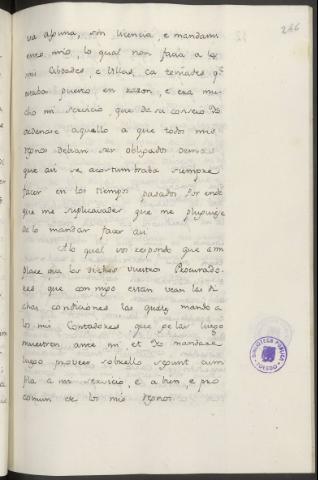 246
va alguna, sin licencia, e mandami
ento mio, lo qual non facia a las
mis Cibdades, e Villas, ca teniades qe
estaba puesto en razon, e era mu
cho mi servicio, que de su consejo Yo
ordenase aquello a que todos mis
regnos debian ser obligados demas
que asi se acostumbraba siempre
facer en los tiempos pasados. Por ende
que me suplicavades que me pluguiese
de lo mandar facer asi
A lo qual vos respondo que a mi
place que los dichos vuestros Procurado-
res que conmigo estan vean las di
chas condiciones las quales mando a
los mis Contadores que ge las luego
muestren ante mi et Yo mandare
luego proveer sobrello segunt cum
pla a mi servicio, e a bien, e pro
comun de los mis regnos.
BIBLIOTECA PUBLICA
TOLEDO